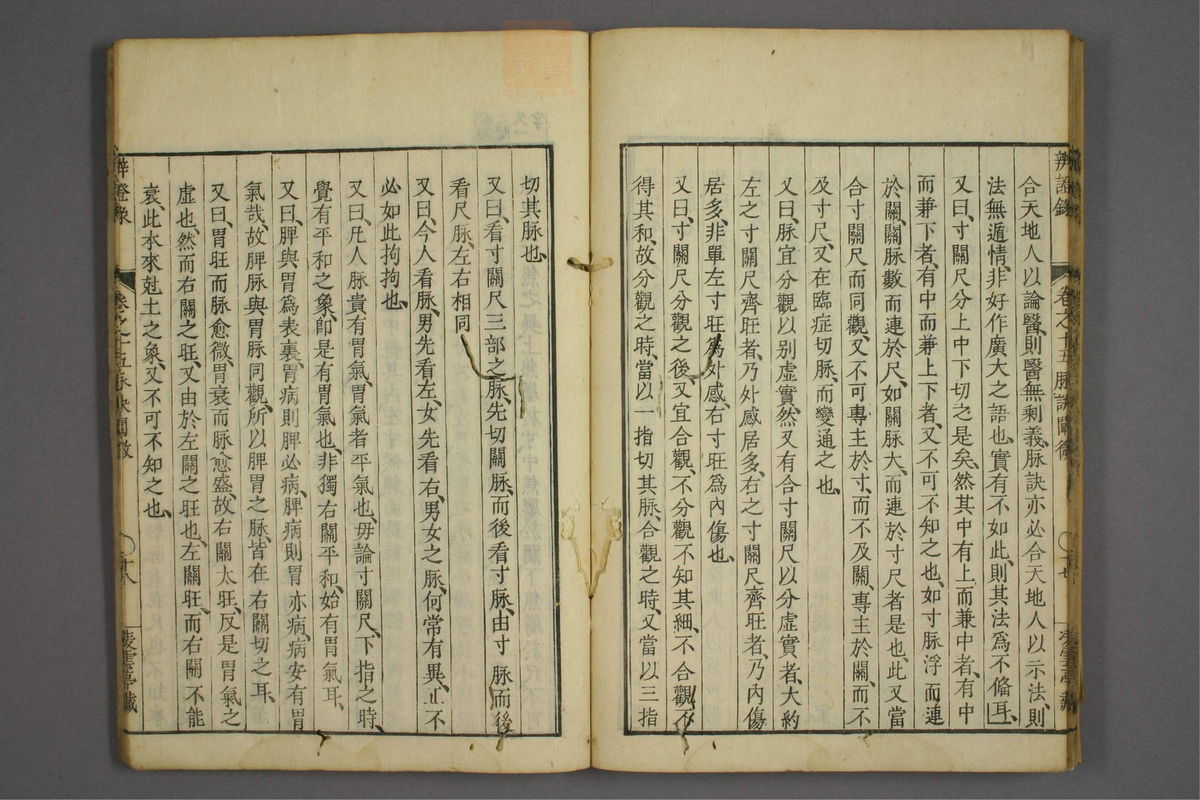 辨證錄 卷之十五 脉訣闡微
合天地人以論醫、則醫無剩義、脉訣亦必合天地人以示法、則
法無遁情、非好作廣大之語也、實有不如此、則其法爲不脩耳、
又曰、寸關尺分上中下切之是矣、然其中有上而兼中者、有中
而兼下者、有中而兼上下者、又不可不知之也、如寸脉浮而連
於關、關脉數而連於尺、如關脉大、而連於寸尺者是也、此又當
合寸關尺而同觀、又不可專主於寸、而不及關、專主於關、而不
及寸尺、又在臨症切脉、而變通之也、
又曰、脉宜分觀以别虛實、然又有合寸關尺以分虛實者、大約
左之寸關尺齊旺者、乃外感居多、右之寸關尺齊旺者、乃內傷
居多、非單左寸旺爲外感、右寸旺爲內傷也、
又曰、寸關尺分觀之後、又宜合觀、不分觀不知其細、不合觀不
得其和、故分觀之時、當以一指切其脉、合觀之時、又當以三指
切其脉也、
又曰、看寸關尺三部之脉、先切關脉、而後看寸脉、由寸脉而後
看尺脉、左右相同、
又曰、今人看脉、男先看左、女先看右、男女之脉、何常有異、正不
必如此拘拘也、
又曰、凡人脉貴有胃氣、胃氣者平氣也、毋論寸關尺、下指之時、
覺有平和之象、卽是有胃氣也、非獨右關平和、始有胃氣耳、
又曰、脾與胃爲表裏、胃病則脾必病、脾病則胃亦病、病安有胃
氣哉、故脾脉與胃脉同觀、所以脾胃之脉、皆在右關切之耳、
又曰、胃旺而脉愈微、胃衰而脉愈盛、故右關太旺、反是胃氣之
虛也、然而右關之旺、又由於左關之旺也、左關旺、而右關不能
衰、此木來尅土之象、又不可不知之也、
辨證錄 卷之十五 脉訣闡微 〇 廿八